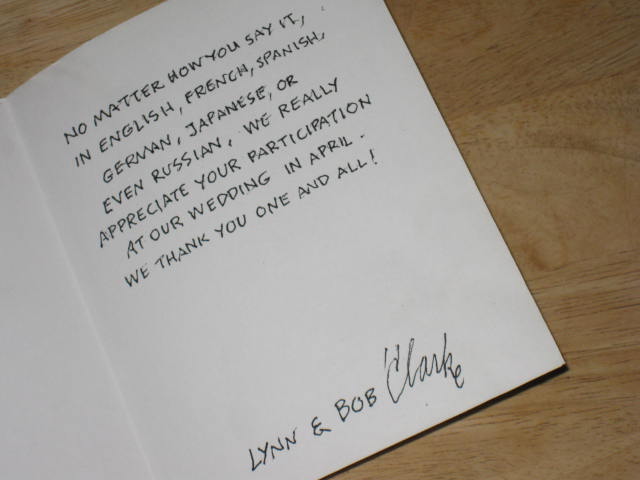 NO MATTER HOW YOU SAY IT,
IN ENGLISH, FRENCH, SPANISH,
GERMAN, JAPANESE, OR
EVEN RUSSIAN, WE REALLY
APPRECIATE YOUR PARTICIPATION
AT OUR WEDDING IN APRIL.
WE THANK YOU ONE AND ALL!
LYNN & BOB Clarke